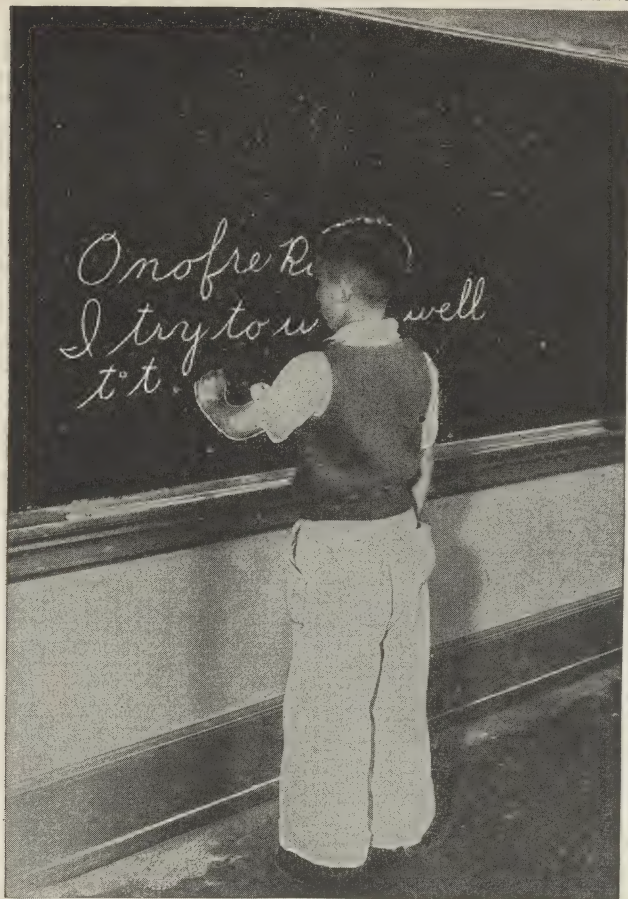 Onofre R
I try to w well
t t.